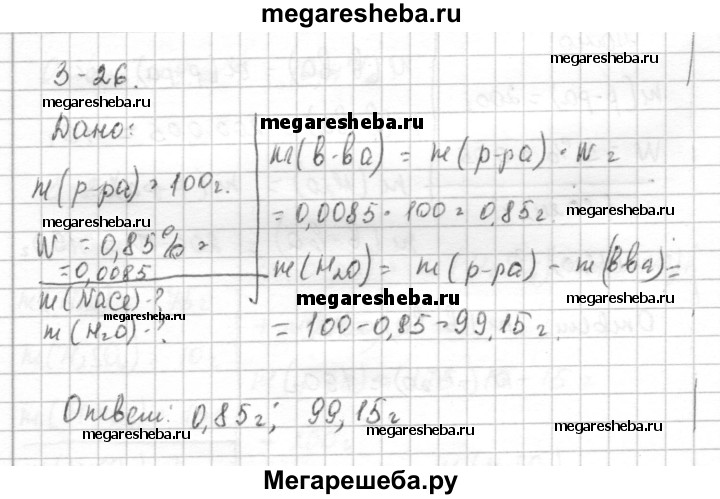 megaresheba.ru
3-26.
megaresheba.ru
megaresheba.ru
Дано:
megaresheba.ru
m(в-ва) = m(р-ра) · W =
megaresheba.ru
m(р-ра) = 100г.
= 0,0085 · 100 = 0,85г.
megaresheba.ru
megaresheba.ru
W = 0,85% =
= 0,0085
m(H₂O) = m(р-ра) - m(Вва) =
megaresheba.ru
m(NaCl) - ?
megaresheba.ru
megaresheba.ru
m(H₂O) - ?
= 100 - 0,85 = 99,15г.
Ответ: 0,85г; 99,15г
megaresheba.ru
megaresheba.ru
megaresheba.ru
Мегарешеба.ру